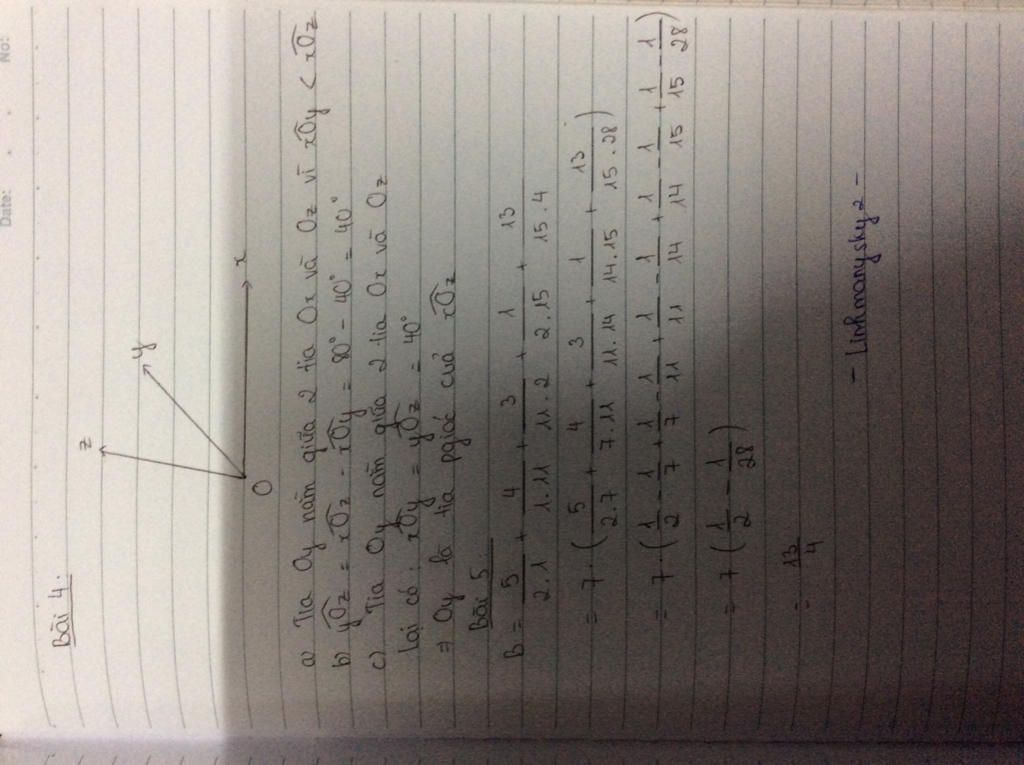 No:
Date:
Bài 4.
z
y
x
O
a) Tia Oy nằm giữa 2 tia Ox và Oz vì xOy < xOz
b) yOz = xOz - xOy = 80° - 40° = 40°
c) Tia Oy nằm giữa 2 tia Ox và Oz
Lại có: xOy = yOz = 40°
⇒ Oy là tia pgiác của xOz
Bài 5
B = 5/2.1 + 4/1.11 + 3/11.2 + 1/2.15 + 13/15.4
= 7.(5/2.7 + 4/7.11 + 3/11.14 + 1/14.15 + 13/15.28)
= 7.(1/2 - 1/7 + 1/7 - 1/11 + 1/11 - 1/14 + 1/14 - 1/15 + 1/15 - 1/28)
= 7(1/2 - 1/28)
= 13/4
- Linhmanysky2 -